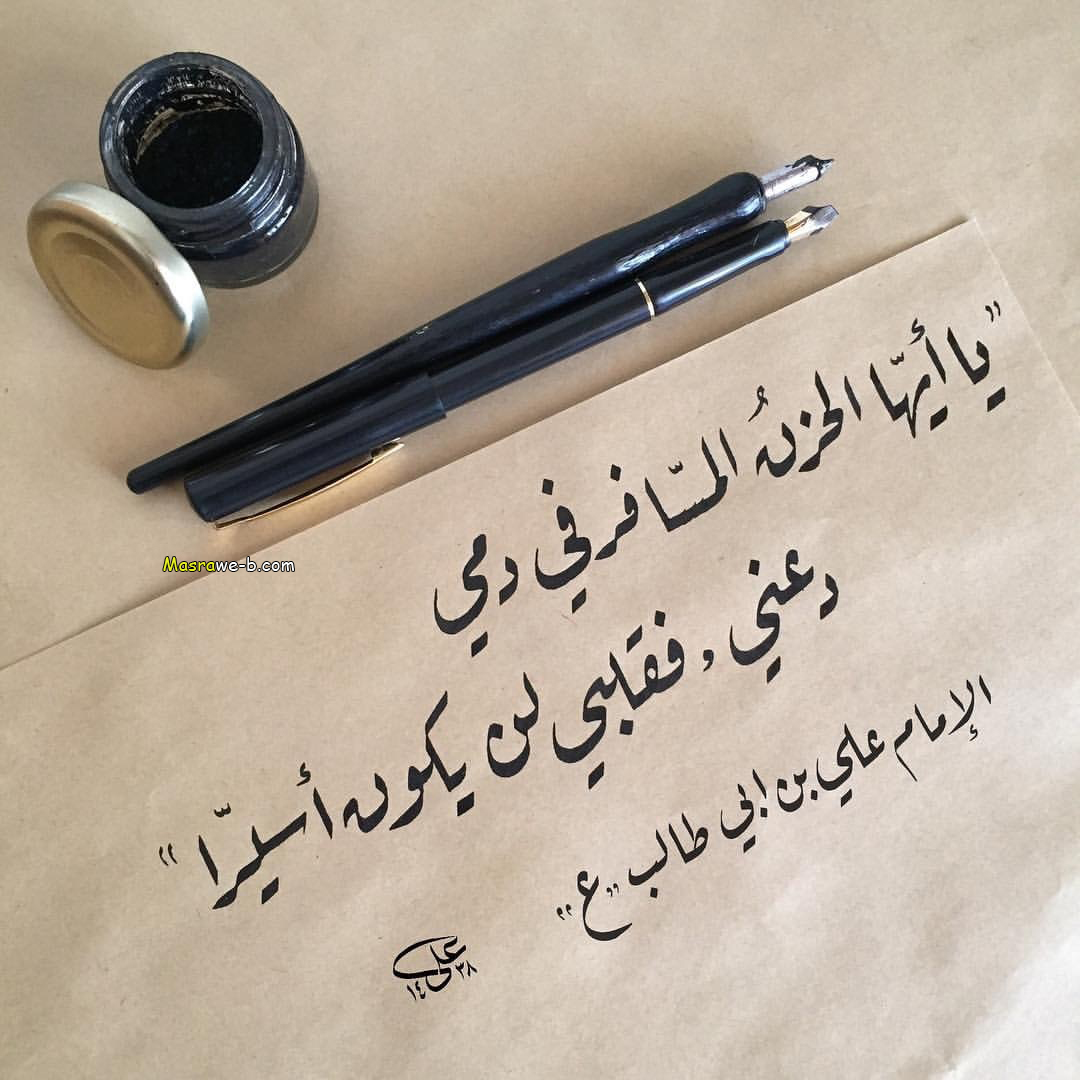 Masrawe-b.com
”يا أيّها الحزنُ المسّافر في دمي
دعني، فقلبي لن يكون أسيرًا“
الإمام علي بن ابي طالب ”ع“
علي
١٤٣٨